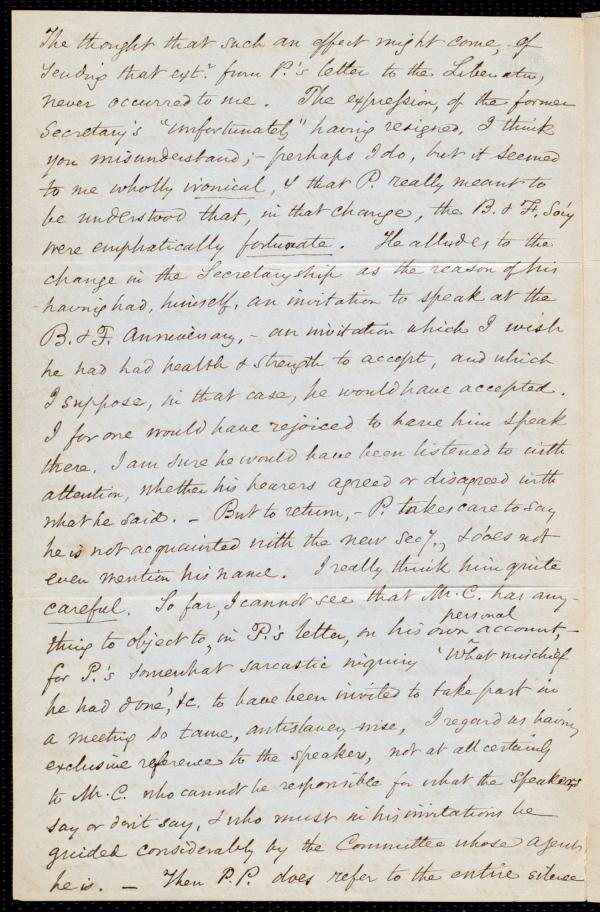 The thought that such an effect might come, of
sending that extr. from P.'s letter to the Liberator,
never occurred to me. The expression, of the former
Secretary's "unfortunately" having resigned, I think
you misunderstand; - perhaps I do, but it seemed
to me wholly ironical, & that P. really meant to
be understood that, in that change, the B. & F. Soc'y
were emphatically fortunate. He alludes to the
change in the Secretaryship as the reason of his
having had, himself, an invitation to speak at the
B. & F. Anniversary, - an invitation which I wish
he had had health & strength to accept, and which
I suppose, in that case, he would have accepted.
I for one would have rejoiced to have him speak
there. I am sure he would have been listened to with
attention, whether his hearers agreed or disagreed with
what he said. - But to return, - P. takes care to say
he is not acquainted with the new Sec'y., & does not
even mention his name. I really think him quite
careful. So far, I cannot see that Mr. C. has any-
thing to object to, in P.'s letter, on his own personal account, -
for P.'s somewhat sarcastic inquiry 'What mischief
he had done', &c. to have been invited to take part in
a meeting so tame, antislavery-wise, I regard as having
exclusive reference to the speakers, not at all certainly
to Mr. C. who cannot be responsible for what the speakers
say or don't say, & who must in his invitations be
guided considerably by the Committee whose agent
he is. - Then P.P. does refer to the entire silence